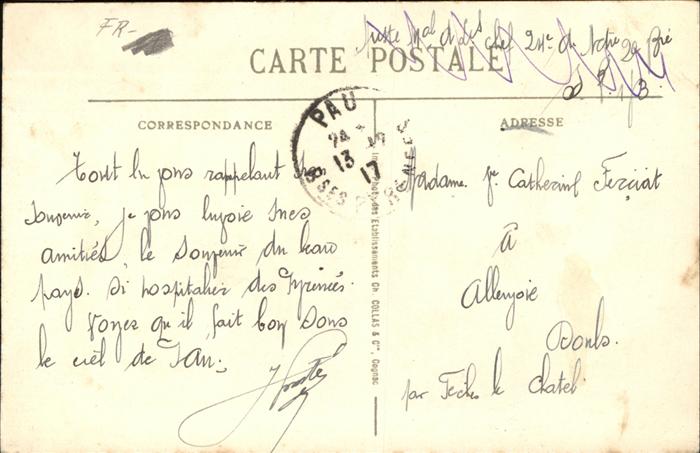 FR-
CARTE POSTALE
CORRESPONDANCE
ADRESSE
PAU
13
17
BSES PYRENEES
Tout en vous rappelant
souvenir, je vous envoie mes
amitiés, le souvenir du beau
pays. si hospitalier des Pyrénées.
Voyez qu'il fait bon sous
le ciel de Pau.
Madame Catherine
à
Allenjoie
Doubs.
par le Chatel
Établissements Ch. COLLAS & Cie, Cognac